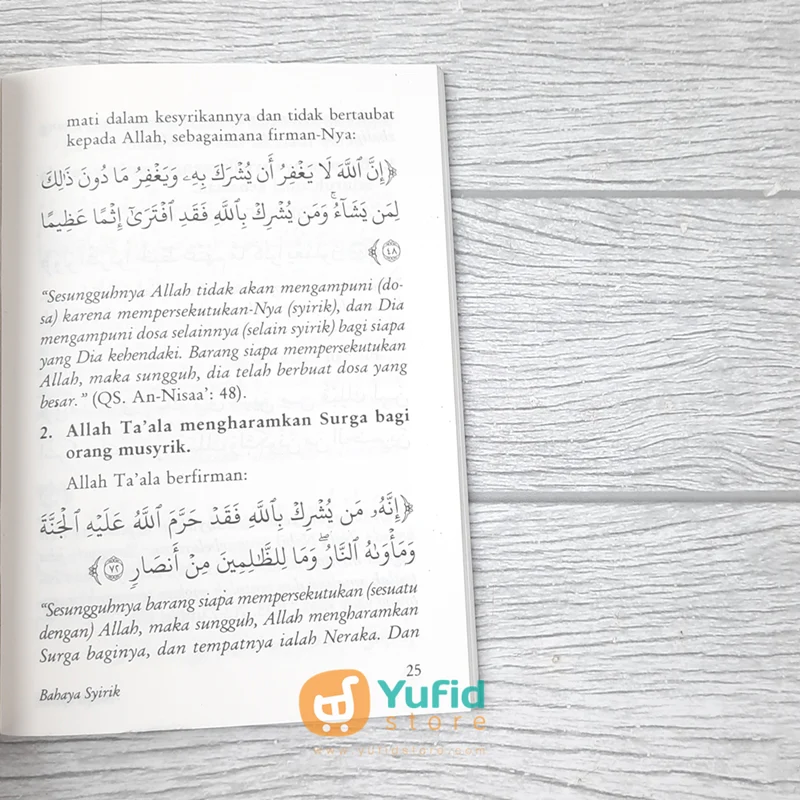 mati dalam kesyrikannya dan tidak bertaubat
kepada Allah, sebagaimana firman-Nya:
﴿إِنَّ ٱللَّهَ لَا يَغْفِرُ أَن يُشْرَكَ بِهِۦ وَيَغْفِرُ مَا دُونَ ذَٰلِكَ
لِمَن يَشَآءُ ۚ وَمَن يُشْرِكْ بِٱللَّهِ فَقَدِ ٱفْتَرَىٰٓ إِثْمًا عَظِيمًا
٤٨﴾
“Sesungguhnya Allah tidak akan mengampuni (do-
sa) karena mempersekutukan-Nya (syirik), dan Dia
mengampuni dosa selainnya (selain syirik) bagi siapa
yang Dia kehendaki. Barang siapa mempersekutukan
Allah, maka sungguh, dia telah berbuat dosa yang
besar.” (QS. An-Nisaa’: 48).
2. Allah Ta’ala mengharamkan Surga bagi
orang musyrik.
Allah Ta’ala berfirman:
﴿إِنَّهُۥ مَن يُشْرِكْ بِٱللَّهِ فَقَدْ حَرَّمَ ٱللَّهُ عَلَيْهِ ٱلْجَنَّةَ
وَمَأْوَىٰهُ ٱلنَّارُ ۖ وَمَا لِلظَّٰلِمِينَ مِنْ أَنصَارٍ ٧٢﴾
“Sesungguhnya barang siapa mempersekutukan (sesuatu
dengan) Allah, maka sungguh, Allah mengharamkan
Surga baginya, dan tempatnya ialah Neraka. Dan
25
Bahaya Syirik
Yufid
store